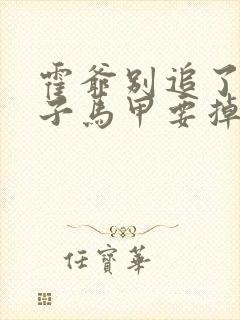 霍爺別追了
子馬甲要掉
任寶華